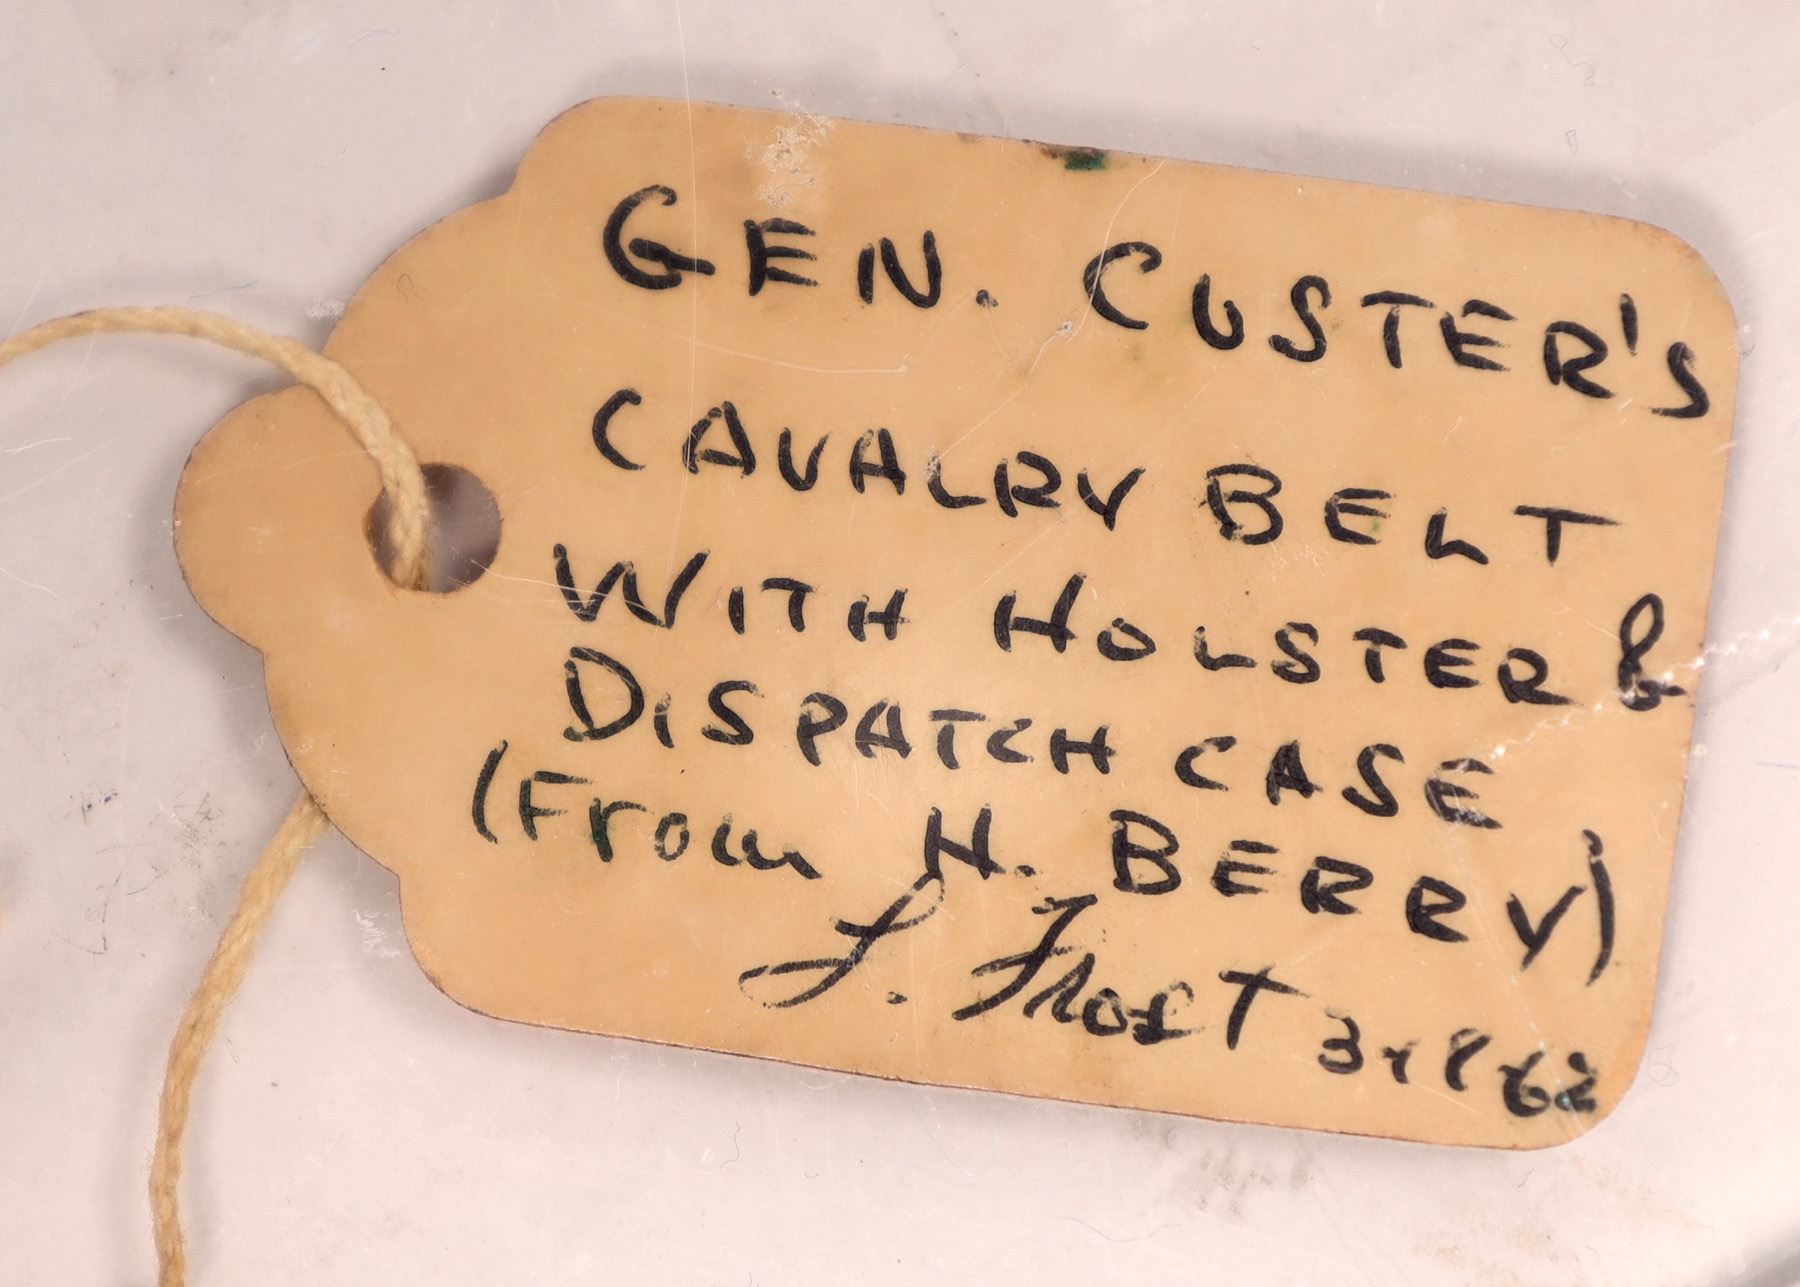 GEN. CUSTER'S
CAVALRY BELT
WITH HOLSTER &
DISPATCH CASE
(From H. BERRY)
L. Frost